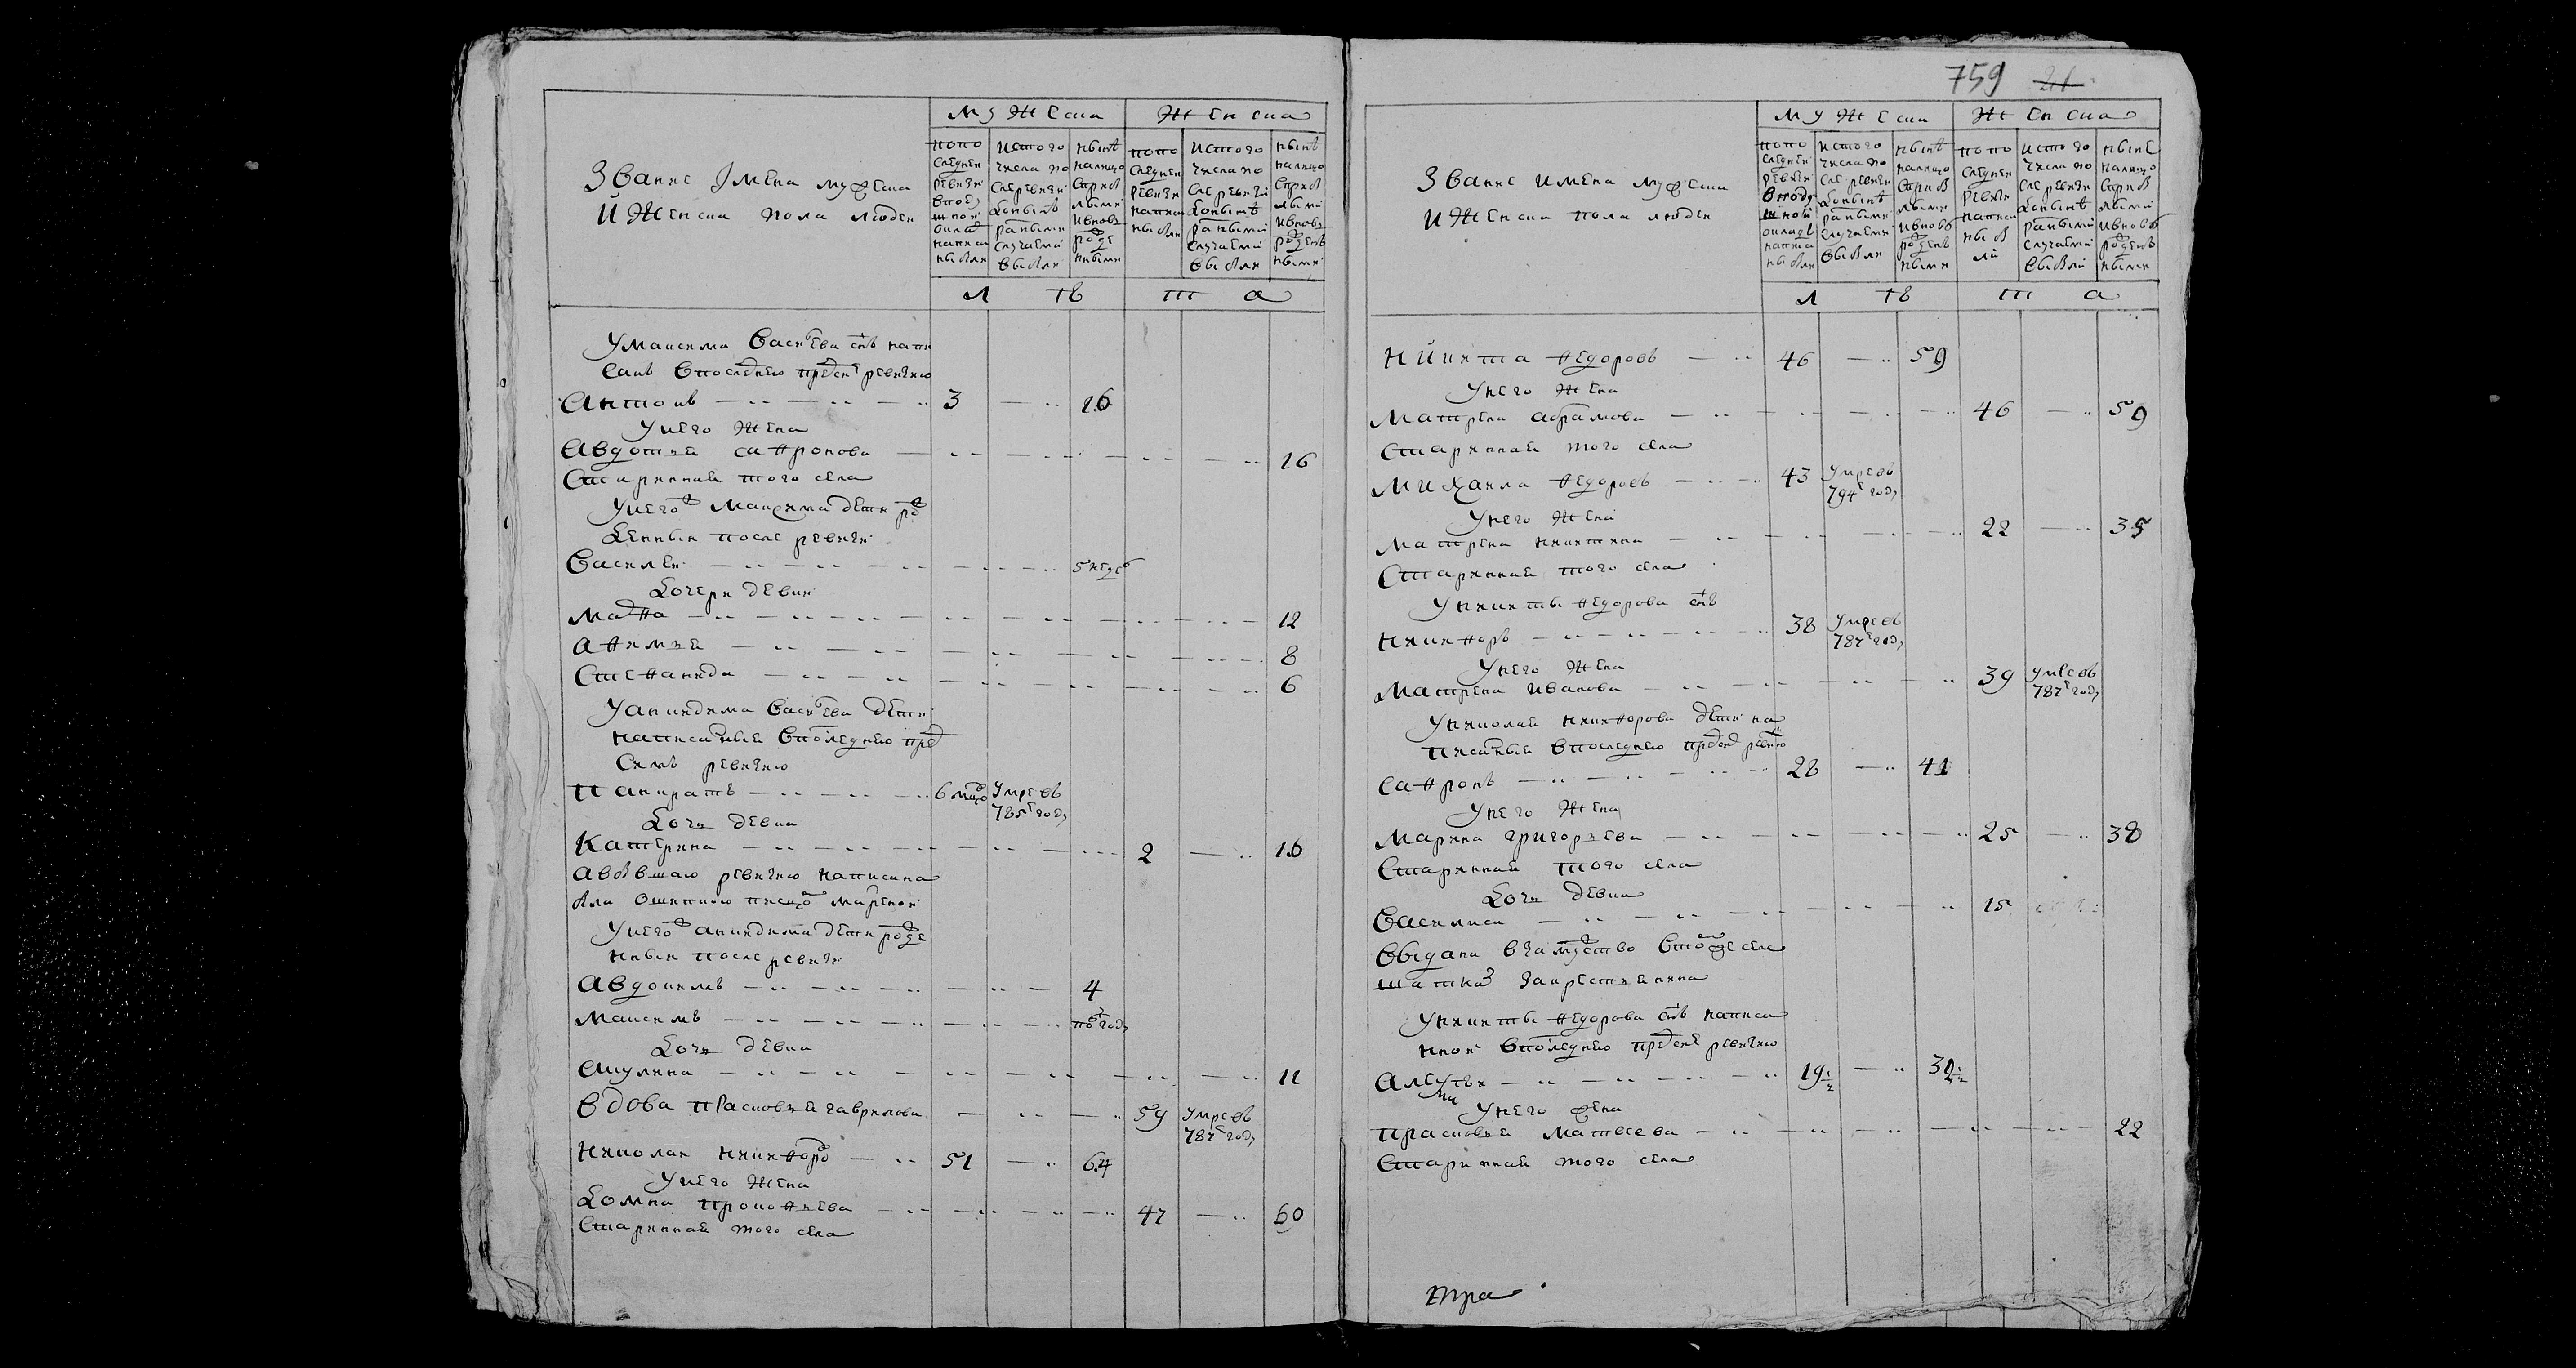 Звание Імена мужеска
и женска пола людеи
мужеска
женска
попо
следнеи
ревизи
вподу
шнои
оклад
написа
ны были
ис того
числа по
сле ревизи
до ныне
разными
случаеми
выбыли
ныне
налицо
с прибы
лыми
и вновь
рожде
нными
попо
следнеи
ревизи
написа
ны были
ис того
числа по
сле ревизи
до ныне
разными
случаеми
выбыли
ныне
налицо
с прибы
лыми
и вновь
рожден
ными
л ѣ т а
У максима Васильева снъ напи
санъ впоследнею пред сим ревизию
Антонъ 3 16
У него жена
Авдотья сафронова 16
Старинная того села
У него ж максима дети ро
жденныя после ревизи
Василеи 5 недель
Дочери девки
Марфа 12
Афимья 8
Стефанида 6
У акиндима Васильева дети
написанныя впоследнею пред
симъ ревизию
Панкратъ 6 месяцо умре въ 785 г году
Дочь девка
Катерина 2 16
а в бывшаю ревизию написана
была ошипкою писцо марьеою
У него ж акиндима дети рожде
нныя после ревизи
Авдокимъ 4
Максимъ полгоду
Дочь девка
Акулина 11
Вдова Прасковья гаврилова 59 умре въ 787 г году
Николаи никифоро 51 64
У него жена
Домна прокофьева 47 60
Старинная того села
759 21
Звание имена мужеска
и женска пола людеи
мужеска
женска
попо
следнеи
ревизи
вподу
шнои
окладъ
написа
ны были
ис того
числа по
сле ревизи
до ныне
разными
случаеми
выбыли
ныне
налицо
с прибы
лыми
и вновь
рожден
ными
попо
следнеи
ревизи
написа
ны бы
ли
ис того
числа по
сле ревизи
до ныне
разными
случаеми
выбыли
ныне
налицо
с прибы
лыми
и вновь
рожден
ными
л ѣ т а
Никита федоровъ 46 59
У него жена
Матрена абрамова 46 59
Старинная того села
Михаила федоровъ 43 умре въ 794 г году
У него жена
Матрена никитина 22 35
Старинная того села
У никиты федорова снъ
Никифоръ 38 умре въ 787 г году
У него жена
Матрена иванова 39 умре въ 787 г году
У николая никифорова дети на
писанныя впоследнею пред сим ревизию
Сафронъ 28 41
У него жена
Марина григорьева 25 38
Старинная того села
Дочь девка
Василиса 15
Выдана в замужство в том же селе
шатках за крестьянина
У никиты федорова снъ написа
нной впоследнею пред сим ревизию
Алеутьи 19 ½ 32 ½
У него жена
Прасковья матвеева 22
Старинная того села
тра